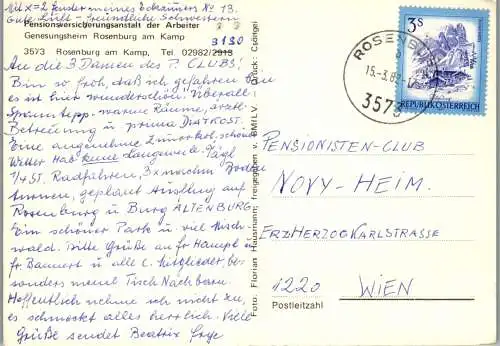 Nüx=2 Fenster meines Schauners Nº 13.
Gute Luft - Freundliche Schwestern
Pensionsversicherungsanstalt der Arbeiter
Genesungsheim Rosenburg am Kamp
3180
3573 Rosenburg am Kamp, Tel. 02982/2913
An die 3 Damen des P. CLUBS!
Bin so froh, daß ich gefahren bin
es ist hier wunderschön! Überall
Spannteppe - warme Räume, ärztl.
Betreuung u prima DIÄTKOST.
Eine angenehme Zimmerkol. schönes
Wetter Hab keine Langeweile. Tägl.
1/4 St. Radfahren, 3 x wöchn Boden
turnen, geplant Ausflug auf
Rosenburg u Burg ALTENBURG
Ein schöner Park u. viel Misch-
wald. Bitte Grüße an Fr Hampl u
Fr Bannert u alle C. Mitglieder, be-
sonders meine Tisch Nachbarn.
Hoffentlich nehme ich nicht zu,
es schmeckt alles herrlich. Viele
Grüße sendet Beatrix
Foto: Florian Hausmann; freigegeben v. BMfLV. Druck:
3s
REPUBLIK ÖSTERREICH
ROSENBURG
15.-3.
3573
PENSIONISTEN-CLUB
NOVY-HEIM.
ERZHERZOG KARLSTRASSE
1220 WIEN
Postleitzahl